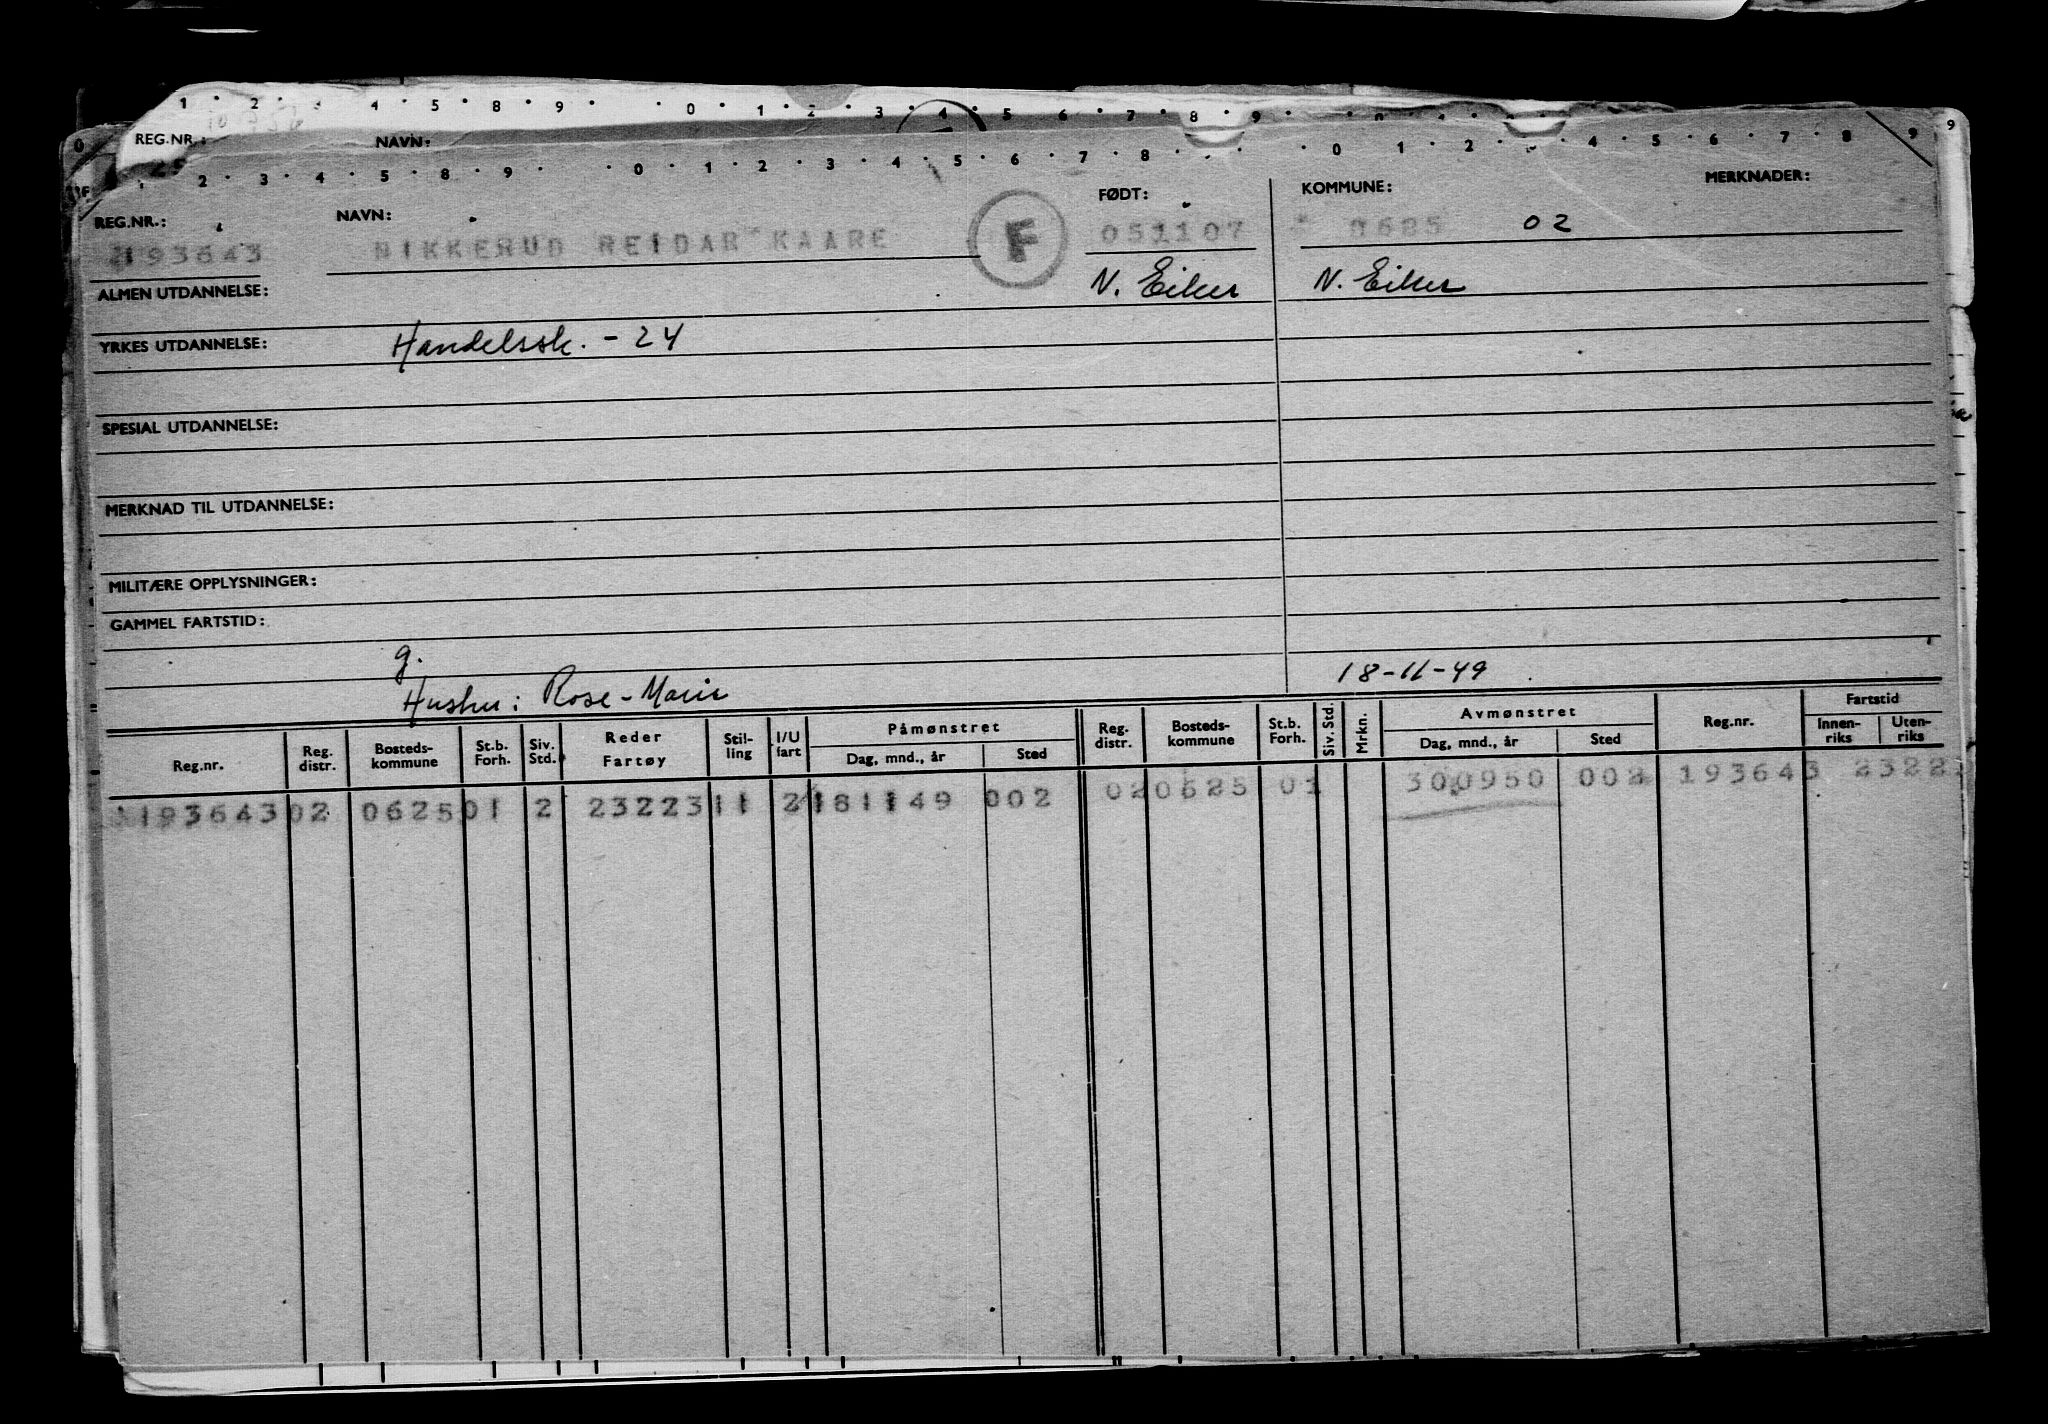 1 2 4 5 8 9 0 1 2 3 4 5 6 7 8 9
REG.NR.: NAVN:
2 3 4 5 8 9 0 1 2 3 4 5 6 7 8 0 1 2 4 5 6 7 8 9
REG.NR.: NAVN: FØDT: KOMMUNE: MERKNADER:
193643 NIKKERUD REIDAR KAARE F 051107 0625 02
ALMEN UTDANNELSE: N. Eiker N. Eiker
YRKES UTDANNELSE: Handelssk. - 24
SPESIAL UTDANNELSE:
MERKNAD TIL UTDANNELSE:
MILITÆRE OPPLYSNINGER:
GAMMEL FARTSTID:
g.
Hustru: Rose-Marie 18-11-49
Reg.nr. Reg. distr. Bosteds- kommune St.b. Forh. Siv. Std. Reder Fartøy Stil- ling I/U fart Påmønstret Dag, mnd., år Sted Reg. distr. Bosteds- kommune St.b. Forh. Siv. Std. Mrkn. Avmønstret Dag, mnd., år Sted Reg.nr. Fartstid Innen- riks Uten- riks
193643 02 0625 01 2 23223 11 2 181149 002 02 0625 01 300950 002 193643 2322